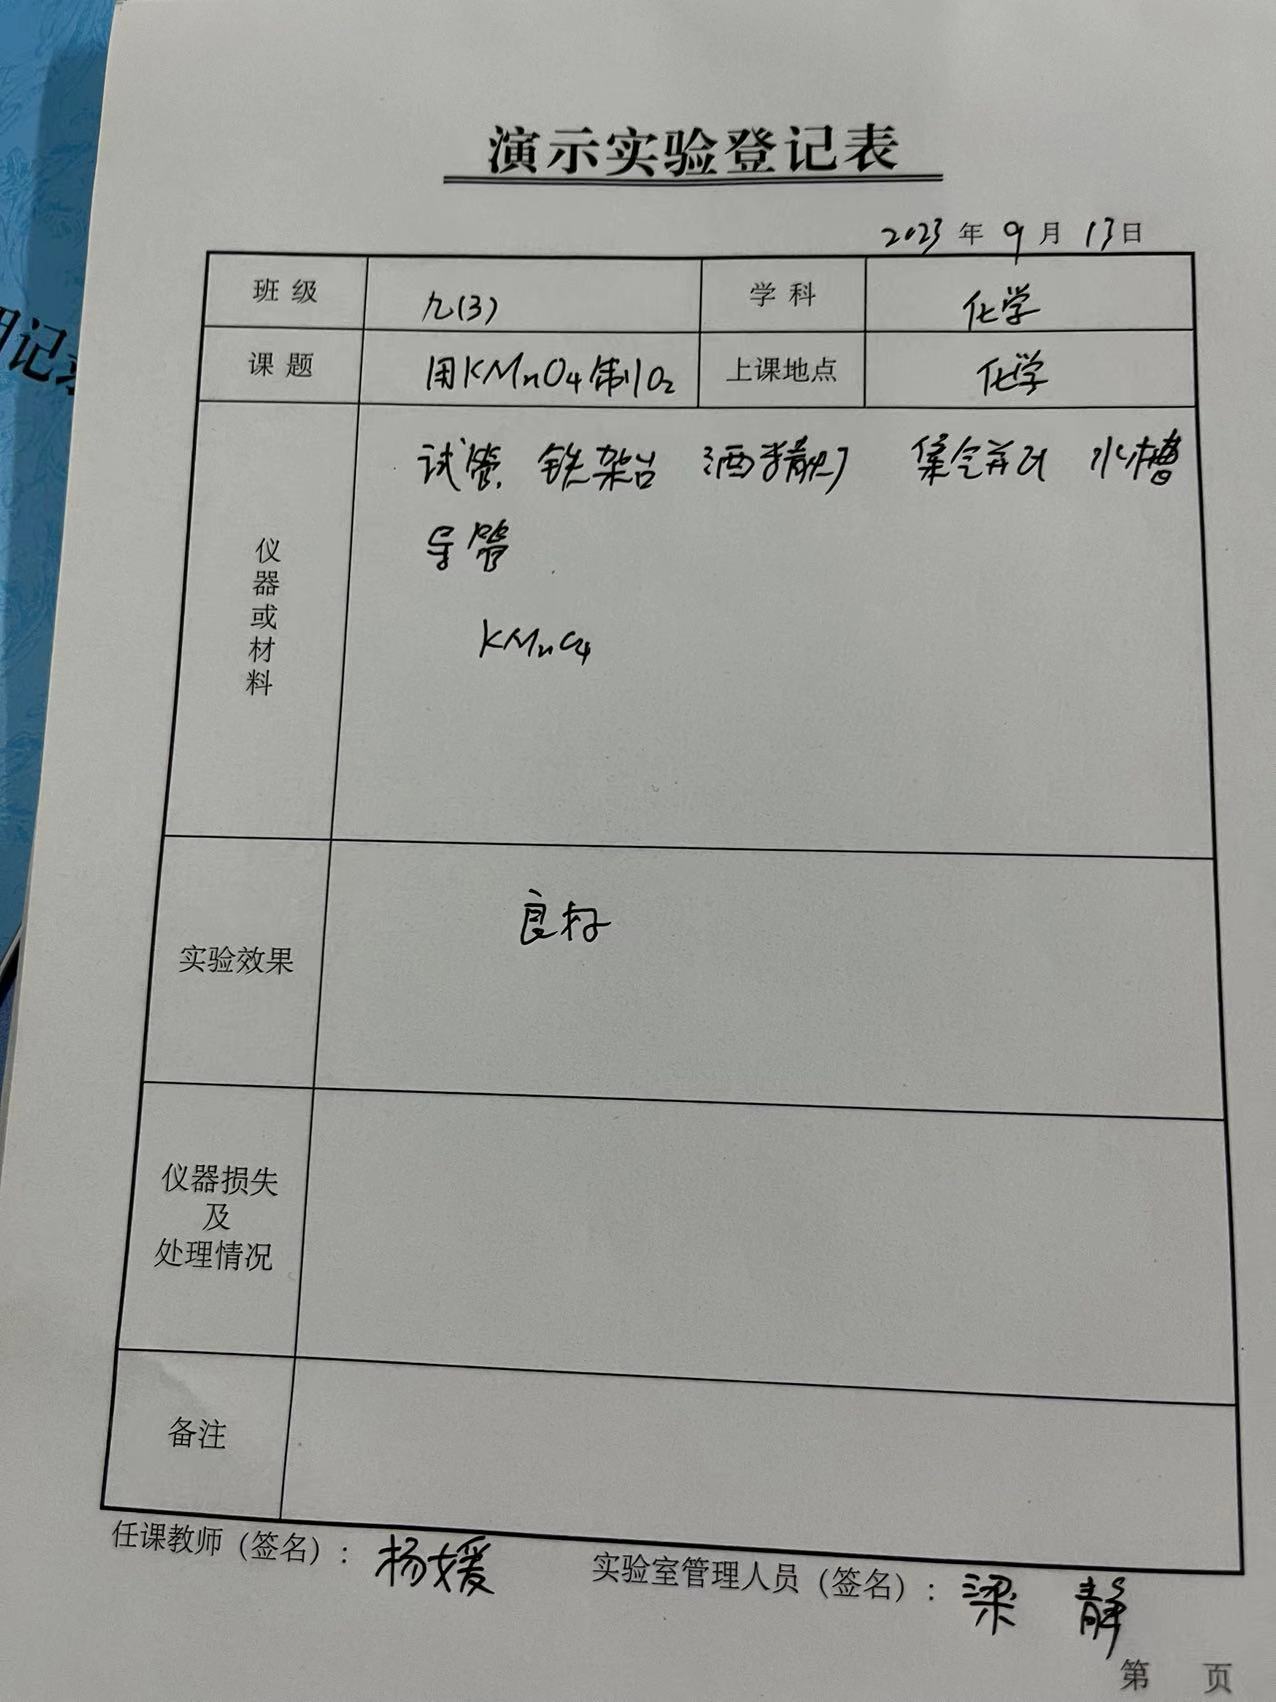 演示实验登记表
2023年9月13日
班级 九(3) 学科 化学
课题 用KMnO4制O2 上课地点 化学
仪器或材料
试管 铁架台 酒精灯 集气瓶 水槽
导管
KMnO4
实验效果 良好
仪器损失
及
处理情况
备注
任课教师（签名）：杨媛 实验室管理人员（签名）：梁静
第 页